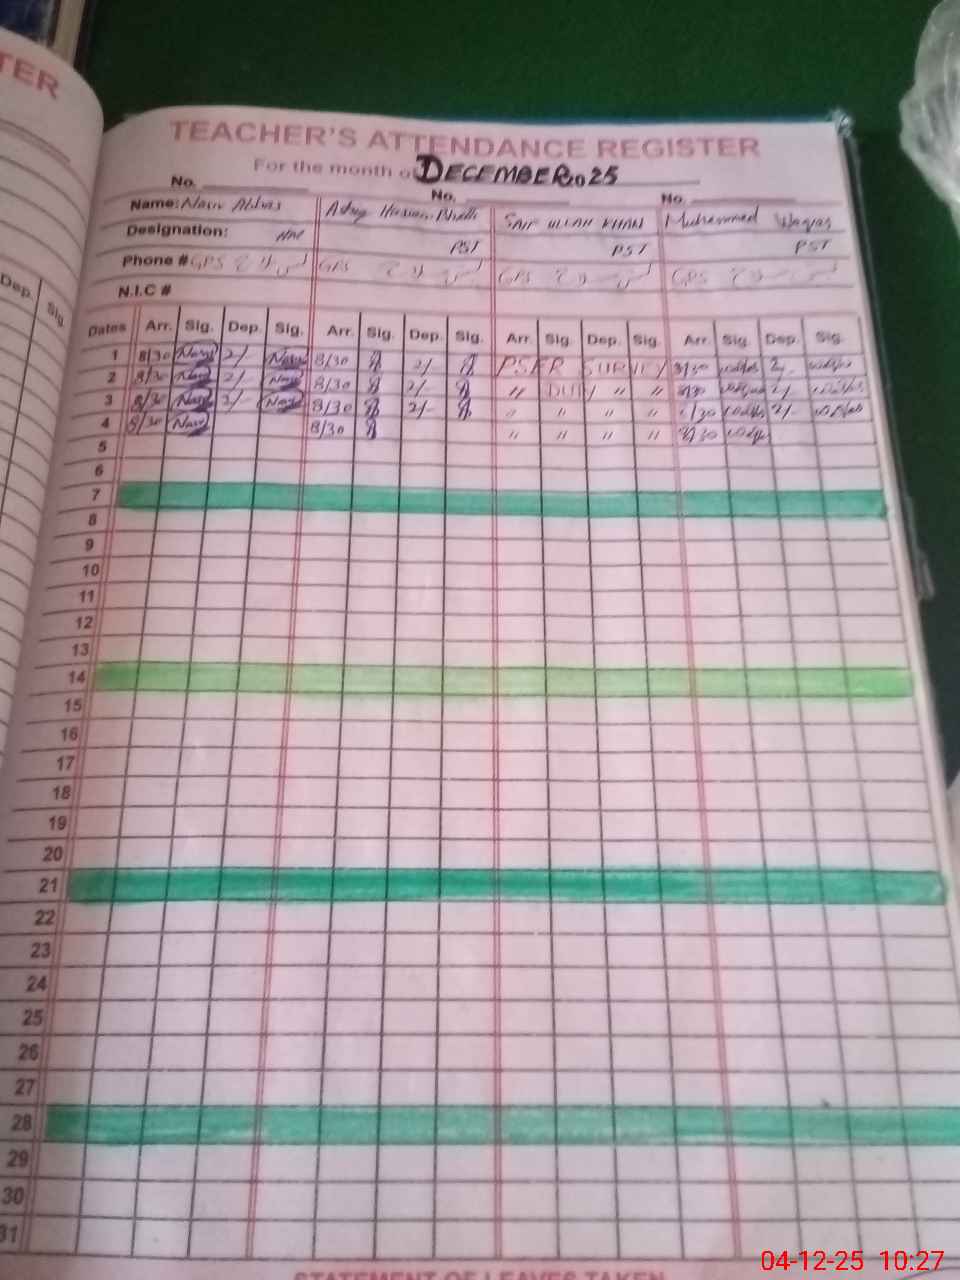 TER
TEACHER'S ATTENDANCE REGISTER
For the month of DECEMBER 2025
No. No. No.
Name: Nasir Abbas SAIF ULLAH KHAN Muhammad Waqas
Designation: PST PST PST
Phone # GPS GPS GPS GPS
N.I.C #
Dep. Sig.
Dates Arr. Sig. Dep. Sig. Arr. Sig. Dep. Sig. Arr. Sig. Dep. Sig. Arr. Sig. Dep. Sig.
1 8/30 2/- 8/30 2/- PSER SURVEY 8/30 2/-
2 8/30 2/- 8/30 2/- " DUTY " " 8/30 2/-
3 8/30 2/- 8/30 2/- " " " " 8/30 2/-
4 8/30 8/30 " " " " 8/30
5
6
7
8
9
10
11
12
13
14
15
16
17
18
19
20
21
22
23
24
25
26
27
28
29
30
31
STATEMENT OF LEAVES TAKEN
04-12-25 10:27